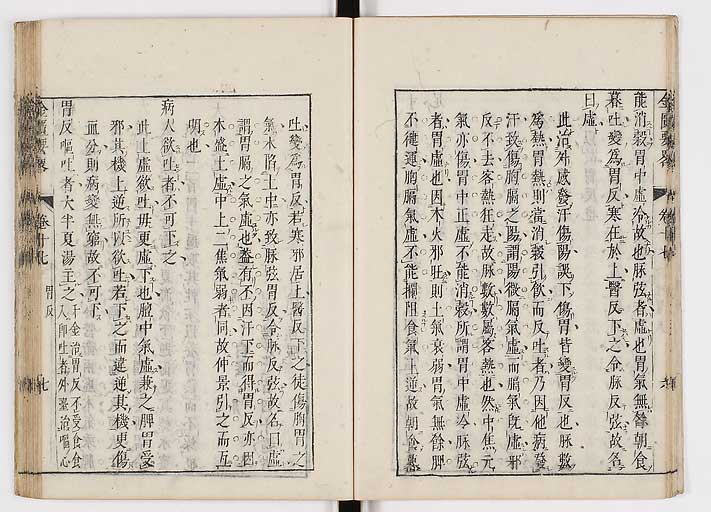 能消穀胃中虛冷故也脉弦者虛也胃氣無餘朝食
暮吐變爲胃反寒在於上醫反下之今脉反弦故名
曰虛
此治外感發汗傷陽誤下傷胃皆變胃反也脉數
爲熱胃熱則當消穀引飲而反吐者乃因他病發
汗致傷胸膈之陽謂陽微膈氣虛而膈氣既虛邪
反不去客熱狂走故脉數數屬客熱也然中焦元
氣亦傷胃中正虛不能消穀所謂胃中虛冷脉弦
者胃虛也因木火邪旺則土氣衰弱胃氣無餘脾
不健運胸膈氣虛不能攔阻食氣上逆故朝食暮
吐變爲胃反若寒邪居上醫反下之徒傷胸胃之
氣木阽土中亦致脉弦胃反今脉反弦故名曰虛
謂胃膈之氣虛也蓋有不因汗下而得胃反亦因
木盛土虛中上二焦氣弱者同故仲景引之而互
明也
病人欲吐者不可下之
此上虛欲吐毋更虛下也膻中氣虛兼之脾胃受
邪其機上逆所以欲吐若下之而違逆其機更傷
血分則病變無窮故不可下
胃反嘔吐者大半夏湯主之千金治胃反不受食食
入卽吐者外臺治嘔心
金匱要略
卷十七
胃反
七
金匱要略
卷十七
六